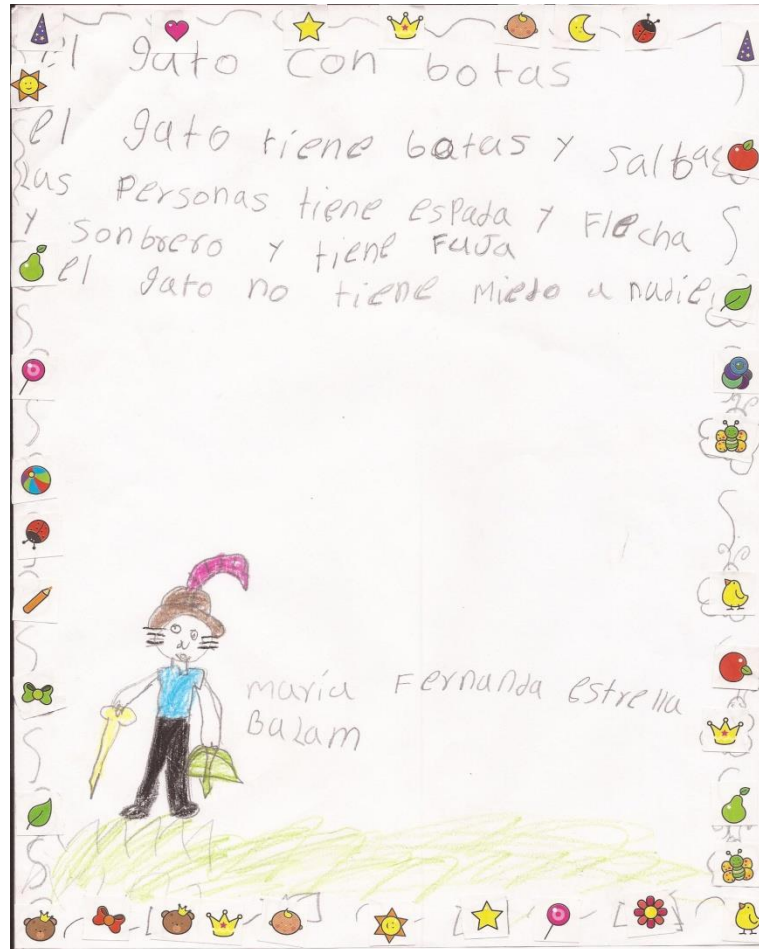 El gato con botas
el gato tiene botas y salba
las personas tiene espada y Flecha
y sonbrero y tiene FUJA
el gato no tiene miedo a nadie.
maría Fernanda estrella
Balam